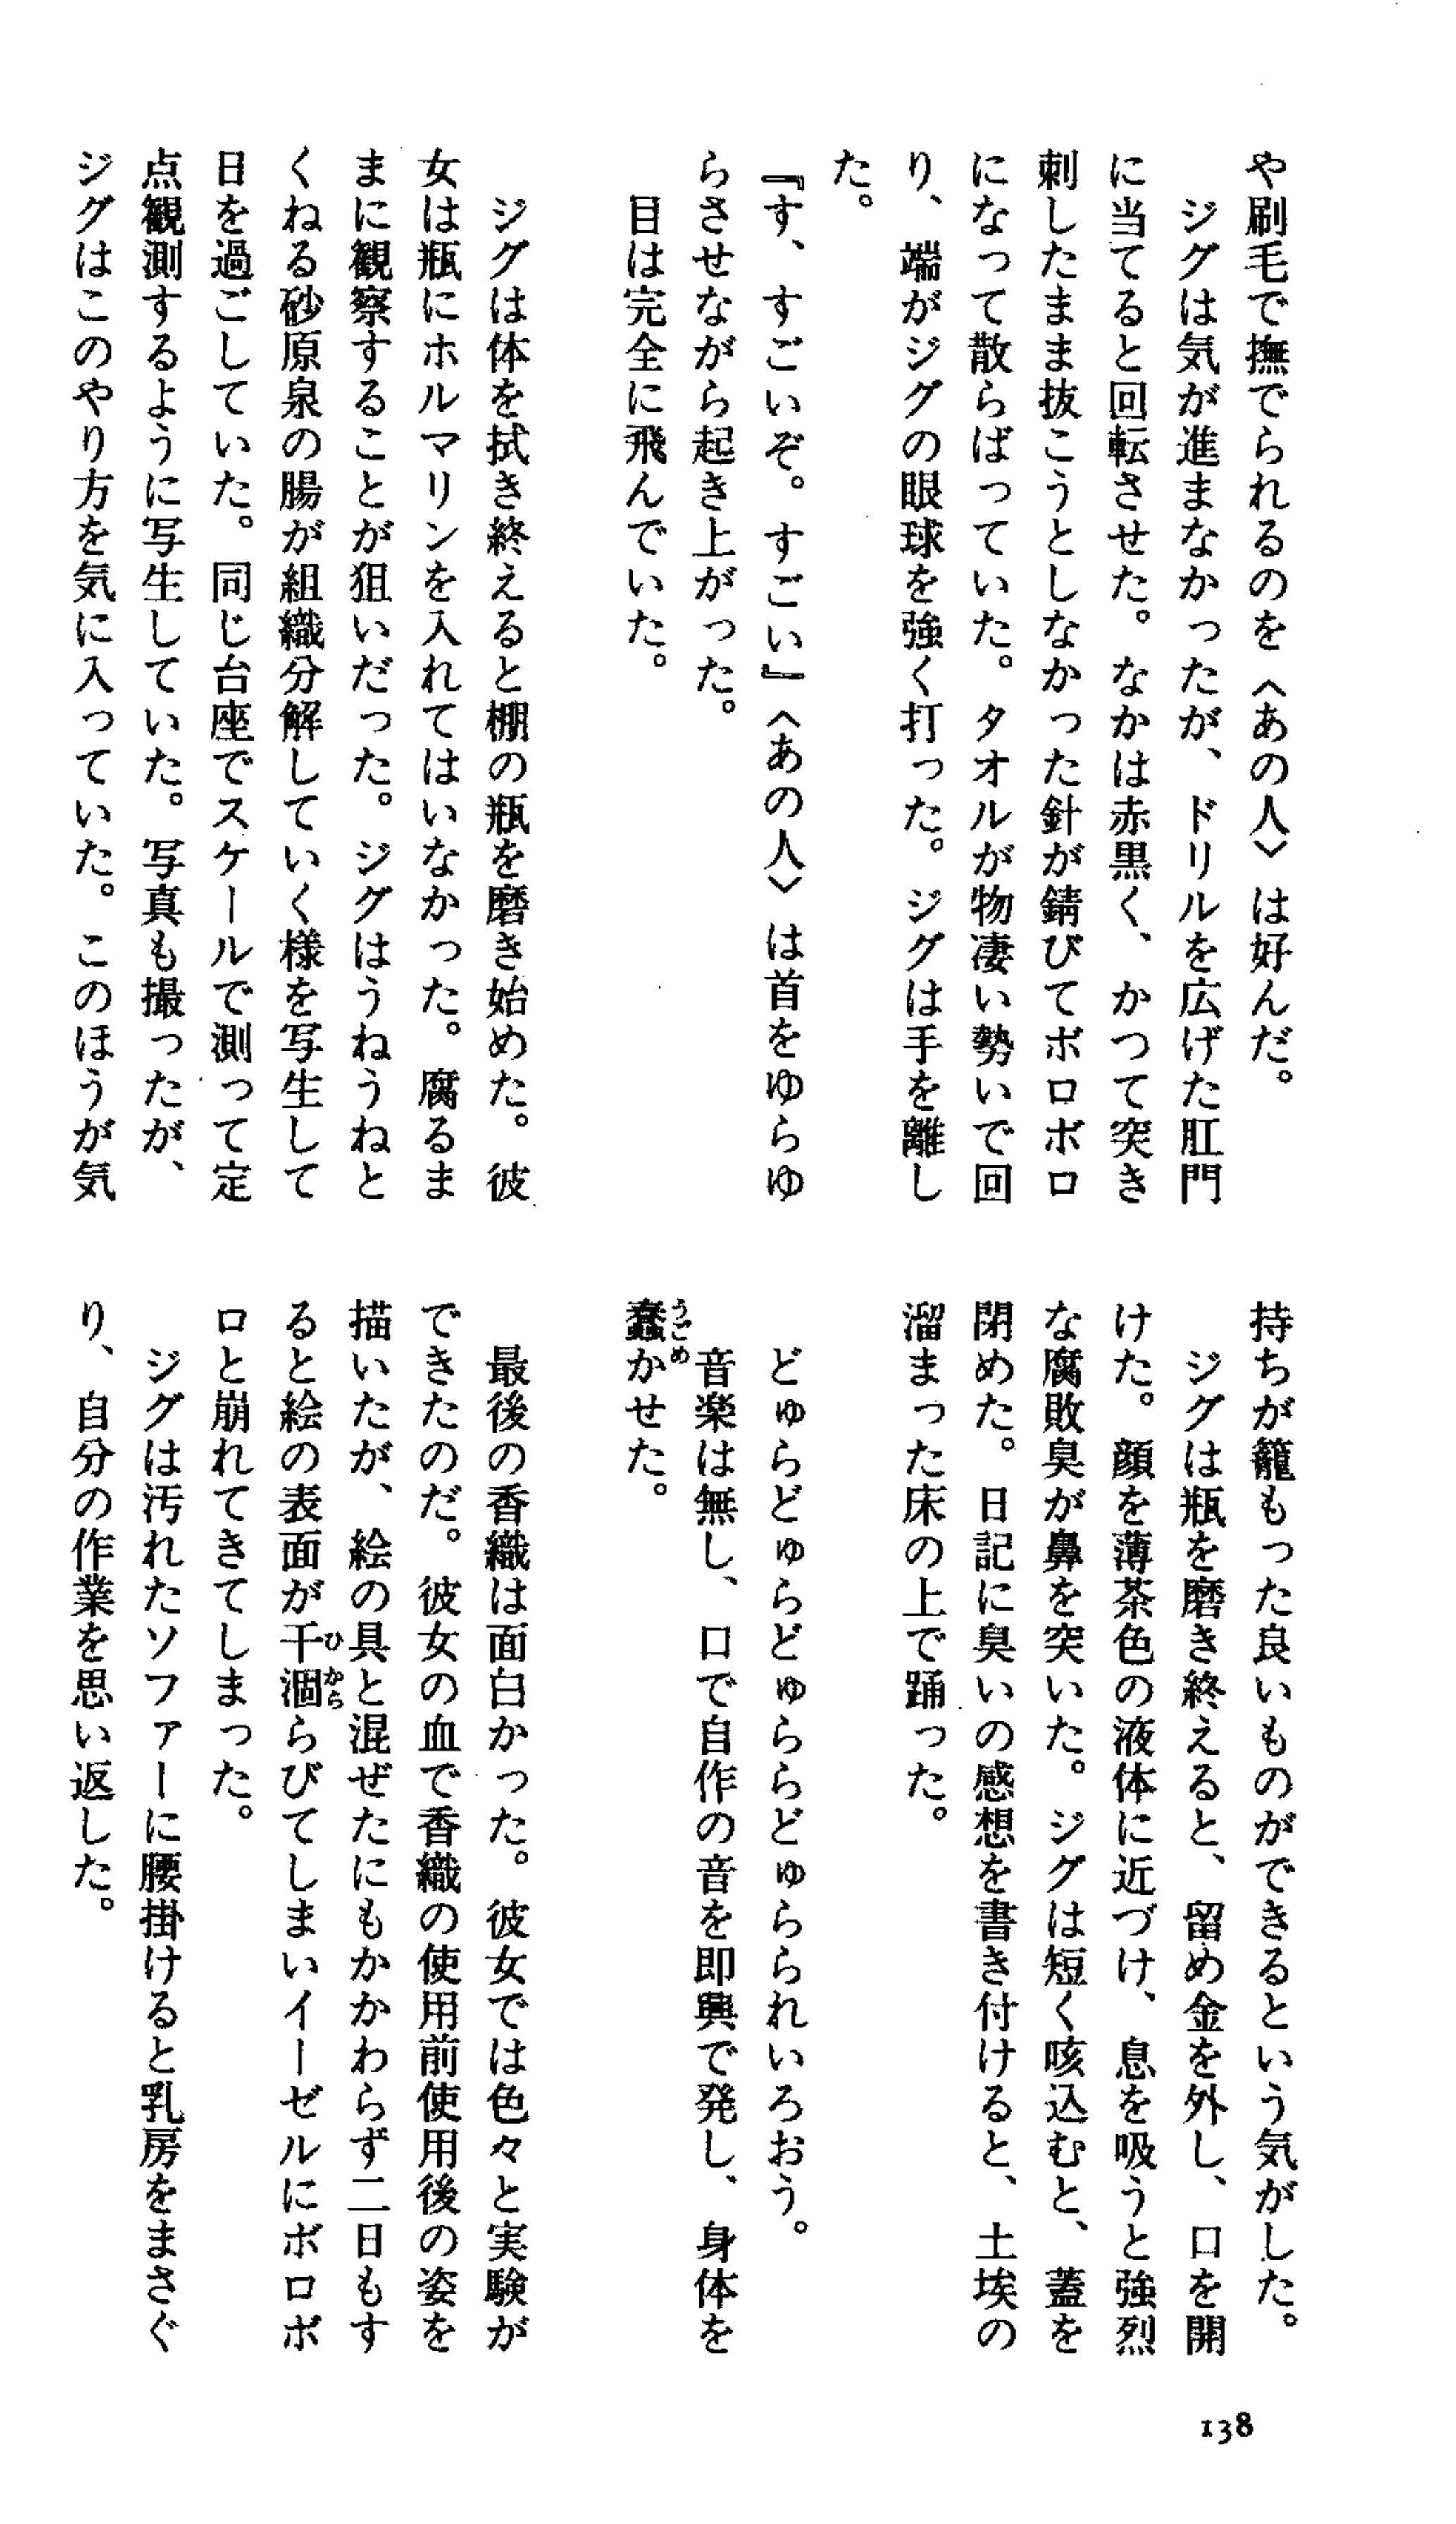 や刷毛で撫でられるのを〈あの人〉は好んだ。
　ジグは気が進まなかったが、ドリルを広げた肛門
に当てると回転させた。なかは赤黒く、かつて突き
刺したまま抜こうとしなかった針が錆びてボロボロ
になって散らばっていた。タオルが物凄い勢いで回
り、端がジグの眼球を強く打った。ジグは手を離し
た。
『す、すごいぞ。すごい』〈あの人〉は首をゆらゆ
らさせながら起き上がった。
　目は完全に飛んでいた。
　ジグは体を拭き終えると棚の瓶を磨き始めた。彼
女は瓶にホルマリンを入れてはいなかった。腐るま
まに観察することが狙いだった。ジグはうねうねと
くねる砂原泉の腸が組織分解していく様を写生して
日を過ごしていた。同じ台座でスケールで測って定
点観測するように写生していた。写真も撮ったが、
ジグはこのやり方を気に入っていた。このほうが気
持ちが籠もった良いものができるという気がした。
　ジグは瓶を磨き終えると、留め金を外し、口を開
けた。顔を薄茶色の液体に近づけ、息を吸うと強烈
な腐敗臭が鼻を突いた。ジグは短く咳込むと、蓋を
閉めた。日記に臭いの感想を書き付けると、土埃の
溜まった床の上で踊った。
　どゅらどゅらどゅららどゅらられいろおう。
　音楽は無し、口で自作の音を即興で発し、身体を
蠢かせた。
　最後の香織は面白かった。彼女では色々と実験が
できたのだ。彼女の血で香織の使用前使用後の姿を
描いたが、絵の具と混ぜたにもかかわらず二日もす
ると絵の表面が干涸らびてしまいイーゼルにボロボ
ロと崩れてきてしまった。
　ジグは汚れたソファーに腰掛けると乳房をまさぐ
り、自分の作業を思い返した。
138